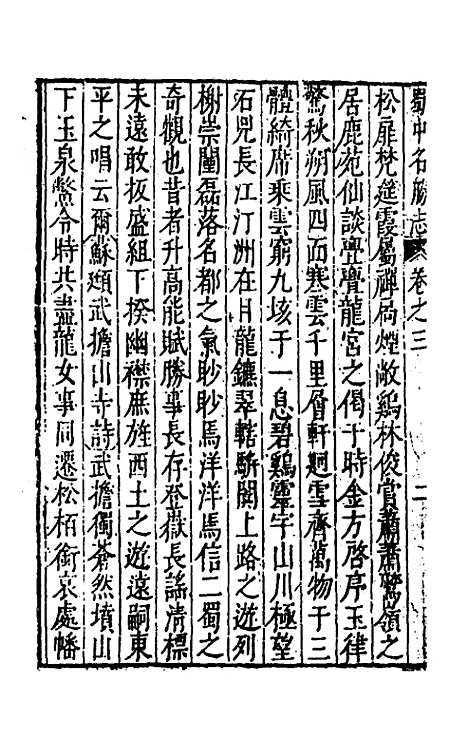 蜀中名勝志 卷之三 二
松扉梵筵霞屬禪扃煙敞鷄林俊賞蕭蕭鷲嶺之
居鹿苑仙談亹亹龍宮之偈于時金方啓序玉律
驚秋朔風四面寒雲千里層軒迥雪齊萬物于三
體綺席乘雲窮九垓于一息碧鷄靈宇山川極望
石兕長江汀洲在目龍鑣翠轄騈闐上路之遊列
榭崇闉磊落名都之氣眇眇焉洋洋焉信二蜀之
奇觀也昔者升高能賦勝事長存登嶽長謠清標
未遠敢扳盛組下揆幽襟庶旌西土之遊遠嗣東
平之唱云爾蘇頲武擔山寺詩武擔獨蒼然墳山
下玉泉鱉令時共盡龍女事同遷松柏銜哀處幡